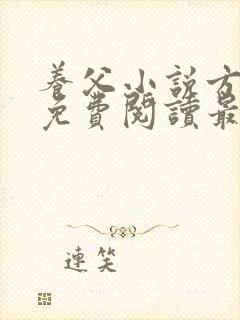 養父小說方
免費閱讀最
連笑